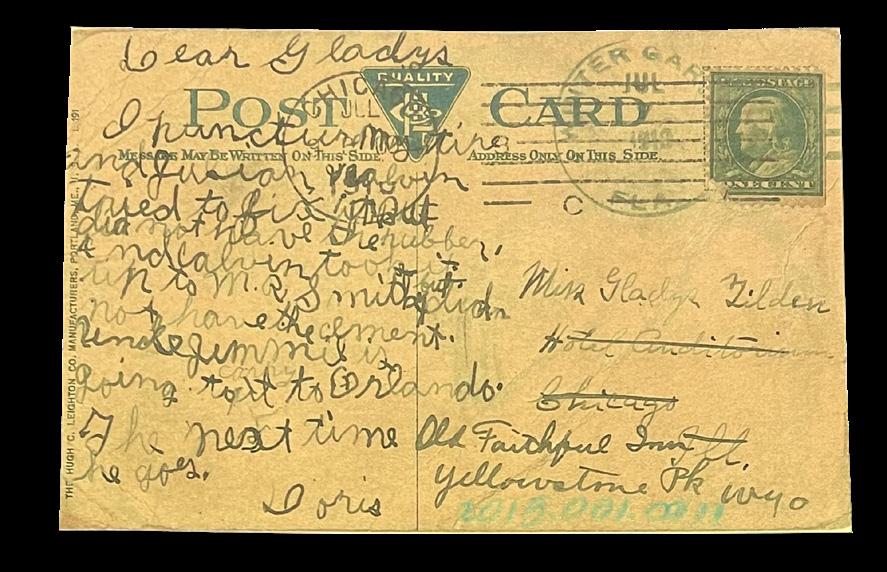 Dear Gladys
QUALITY
POST CARD
I punctured my tire
MESSAGE MAY BE WRITTEN ON THIS SIDE.
and Julian Calvin
tryed to fix it but
did not have the rubber,
And Calvin took it
up to M.R. Smith but
didn
not have the cement.
Uncle Jimmie is
going to carry it to Orlando.
The next time
he goes.
Doris
ADDRESS ONLY ON THIS SIDE.
CHICAGO
JUL
WINTER GARDEN
JUL
1912
FLA.
C
U.S. POSTAGE
ONE CENT
Miss Gladys Tilden
Hotel Auditorium
Chicago
Ill.
Old Faithful Inn
Yellowstone Pk Wyo
2013.001.0011
THE HUGH C. LEIGHTON CO. MANUFACTURERS, PORTLAND, ME., U.